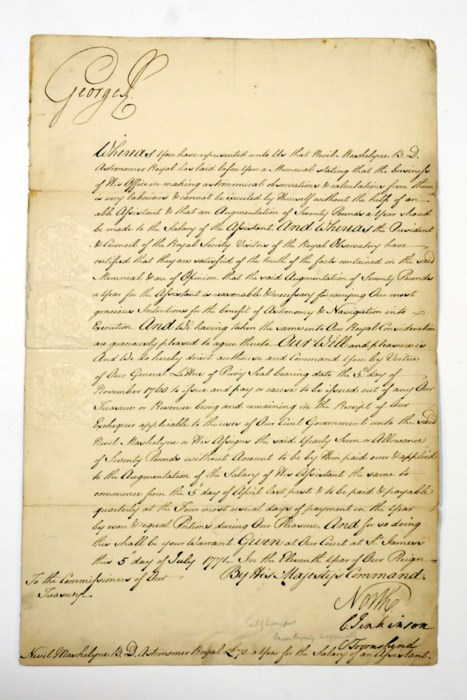 George R
Whereas You have represented unto Us that Nevil Maskelyne B. D.
Astronomer Royal has laid before You a Memorial stating that the business
of His Office in making astronomical observations & calculations from them
is very laborious & cannot be executed by Himself without the help of an
able Assistant & that an Augmentation of Seventy Pounds a Year should
be made to the Salary of the Assistant. And Whereas the President
& Council of the Royal Society Visitors of the Royal Observatory have
certified that they are satisfied of the truth of the facts contained in the said
Memorial & are of Opinion that the said Augmentation of Seventy Pounds
a Year for the Assistant is reasonable & necessary for carrying Our most
gracious Intentions for the benefit of Astronomy & Navigation into
Execution And We having taken the same into Our Royal Consideration
are graciously pleased to agree thereto. Our Will and pleasure is
And We do hereby direct authorise and Command You by Virtue
of Our General Letters of Privy Seal bearing date the 5th day of
November 1760 to issue and pay or cause to be issued out of any Our
Treasure or Revenue being and remaining in the Receipt of Our
Exchequer applicable to the uses of Our Civil Government unto the said
Nevil Maskelyne or His Assigns the said Yearly Sum or Allowance
of Seventy Pounds without Account to be by Him paid over & applied
to the Augmentation of the Salary of His Assistant the same to
commence from the 5th day of April last past & to be paid & payable
quarterly at the Four most usual days of payment in the Year
by even & equal Portions during Our Pleasure. And for so doing
this shall be your Warrant Given at Our Court at St. James's
this 5th day of July 1771. In the Eleventh Year of Our Reign
By His Majesty's Command.
To the Commissioners of Our
Treasury.
North
C Jenkinson
C Townshend
Nevil Maskelyne B. D. Astronomer Royal £70 a Year for the Salary of an Assistant.